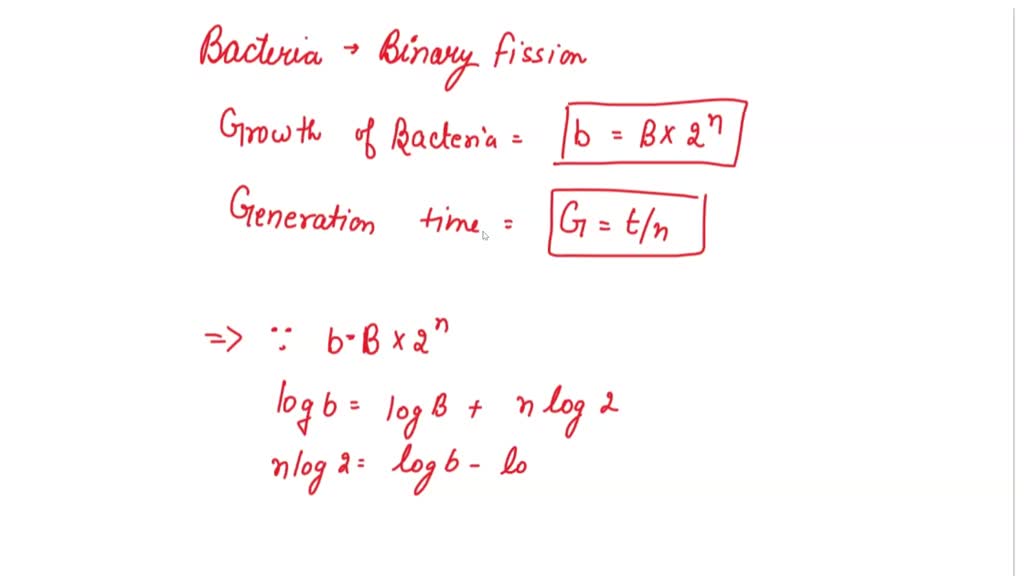 Bacteria → Binary fission
Growth of Bacteria = b = B x 2^n
Generation time = G = t/n
=> ∵ b = B x 2^n
log b = log B + n log 2
n log 2 = log b - lo